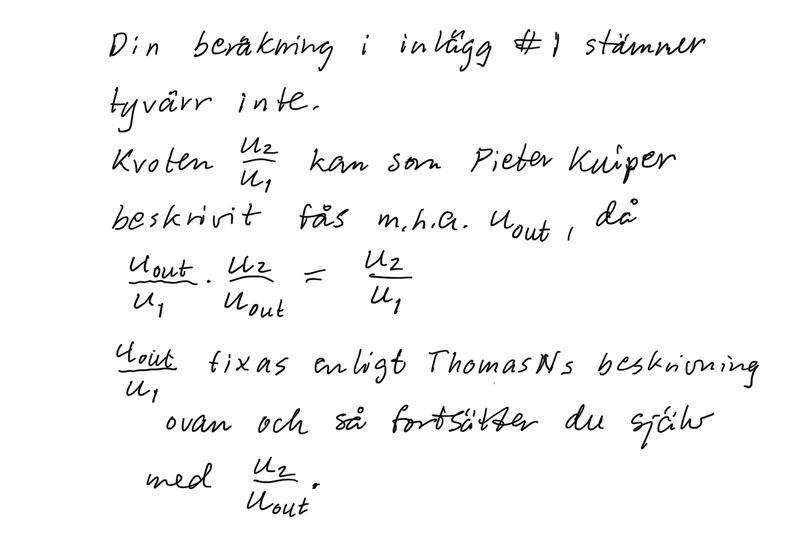 Din beräkning i inlägg #1 stämmer
tyvärr inte.
Kvoten u₂/u₁ kan som Pieter Kuiper
beskrivit fås m.h.a. u_out, då
u_out/u₁ · u₂/u_out = u₂/u₁
u_out/u₁ fixas enligt ThomasNs beskrivning
ovan och så fortsätter du själv
med u₂/u_out.